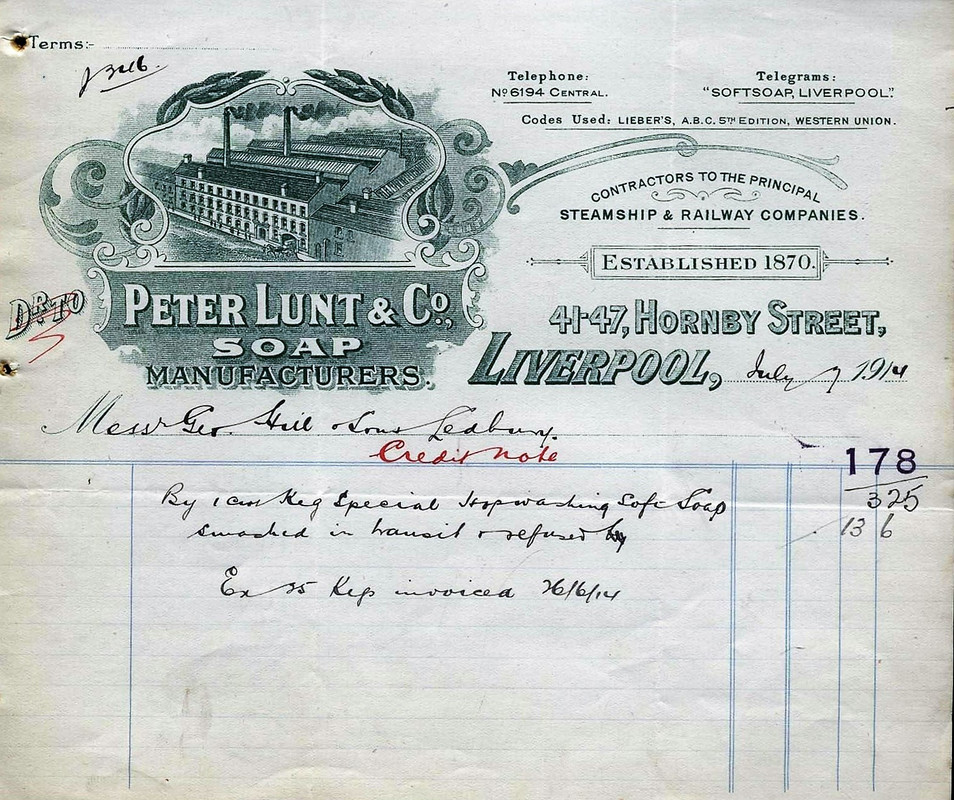 Terms:-
Telephone:
No 6194 CENTRAL.
Telegrams:
"SOFTSOAP, LIVERPOOL."
Codes Used: LIEBER'S, A.B.C. 5TH EDITION, WESTERN UNION.
CONTRACTORS TO THE PRINCIPAL
STEAMSHIP & RAILWAY COMPANIES.
ESTABLISHED 1870.
DR TO
PETER LUNT & Co.,
SOAP
MANUFACTURERS.
41-47, HORNBY STREET,
LIVERPOOL, July 7 1914
Messrs Geo. Hill & Sons Ledbury.
Credit Note
178
325
By 1 cwt Keg Special Hopwashing Soft Soap
smashed in transit & refused by
13 6
Ex 25 Kegs invoiced 26/6/14